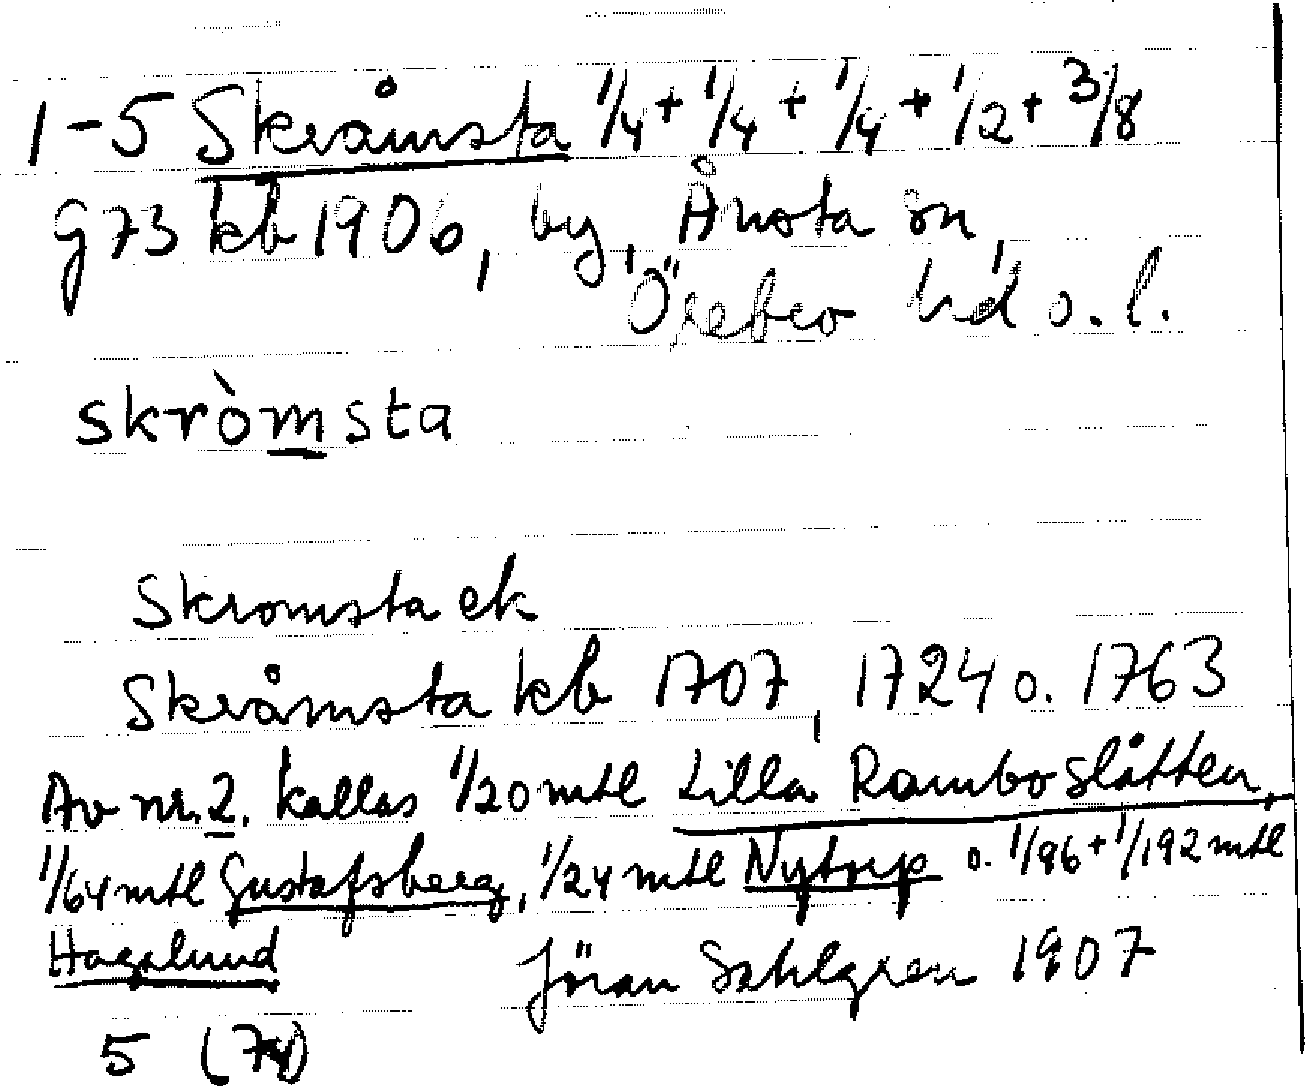 1-5 Skråmsta 1/4 + 1/4 + 1/4 + 1/2 + 3/8
g 73 kb 1906, by, Ånsta sn,
Örebro hd o. l.
skròmsta
Skromsta ek
Skråmsta kb 1707, 1724 o. 1763
Av nr. 2. kallas 1/20 mtl Lilla Ramboslätten,
1/64 mtl Gustafsberg, 1/24 mtl Nytorp o. 1/96 + 1/192 mtl
Hagalund Jöran Sahlgren 1907
5 (74)